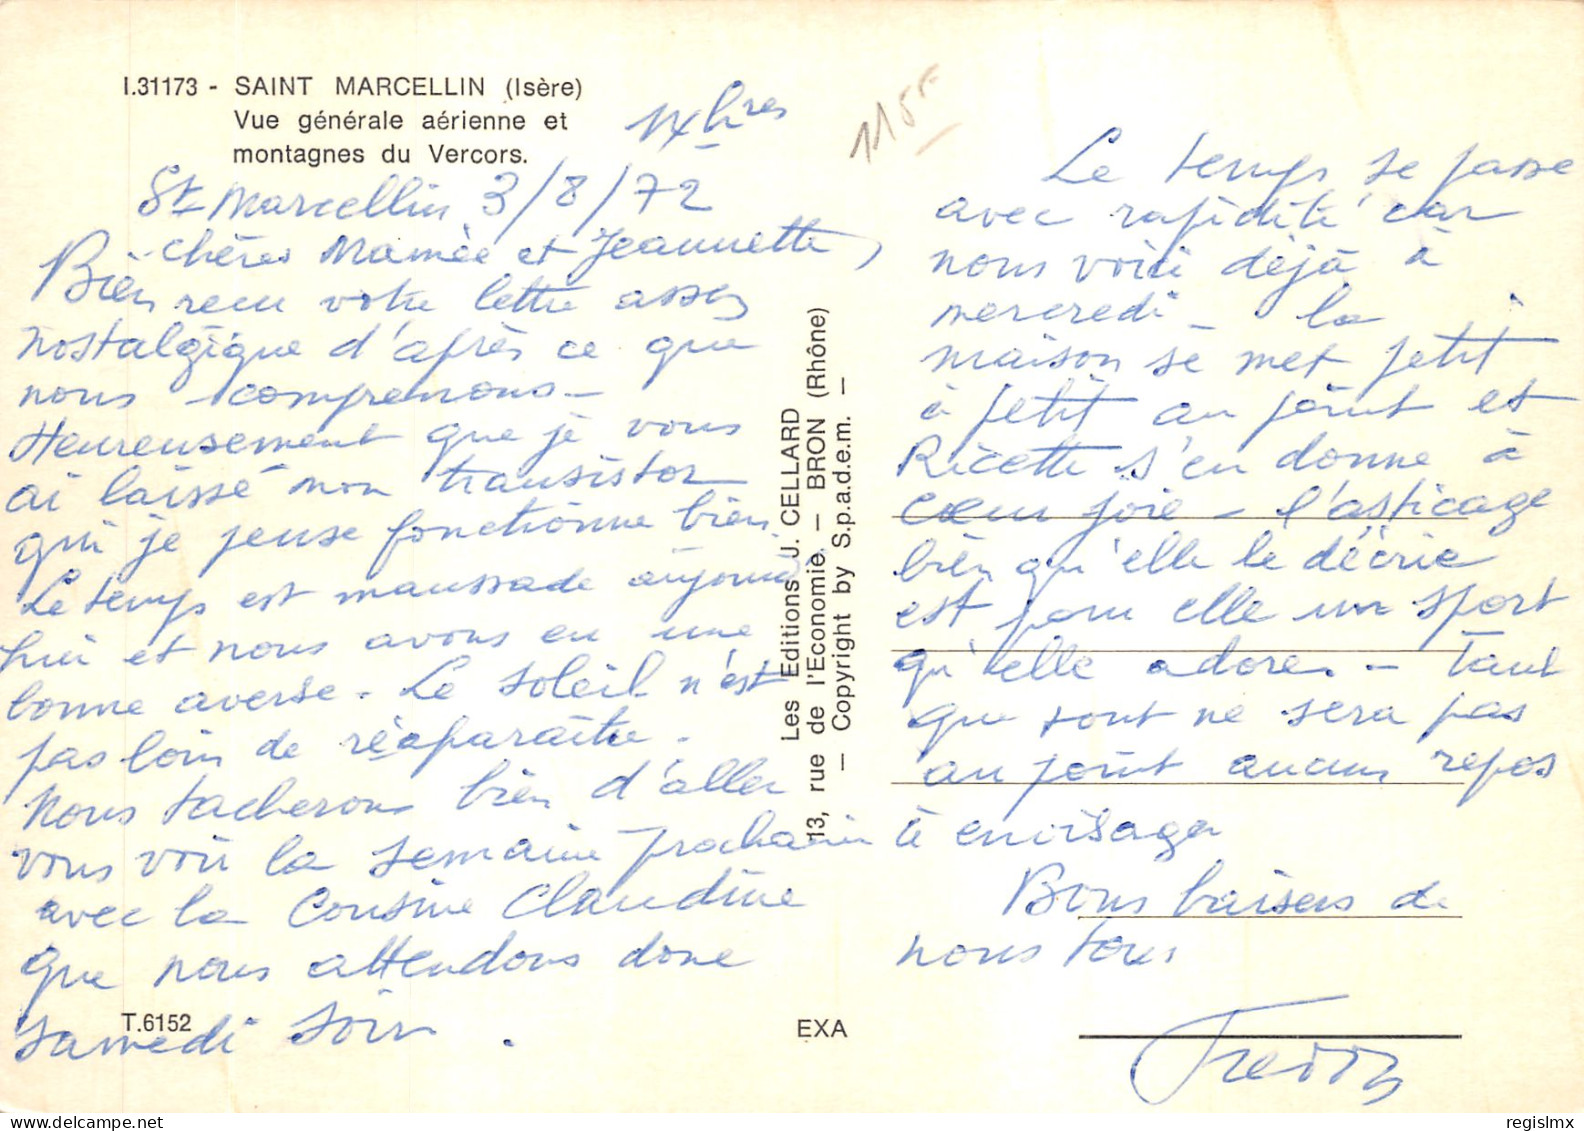 I.31173 - SAINT MARCELLIN (Isère)
Vue générale aérienne et
montagnes du Vercors.
14 hres
115F
St Marcellin 3/8/72
Chères Mamée et Jeannette,
Bien reçu votre lettre assez
nostalgique d'après ce que
nous comprenons -
Heureusement que je vous
ai laissé mon transistor
qui je pense fonctionne bien
Le temps est maussade aujourd'
hui et nous avons eu une
bonne averse. Le soleil n'est
pas loin de réaparaître.
Nous tacherons bien d'aller
vous voir la semaine prochaine
avec la Cousine Claudine
que nous attendons donc
samedi soir.
T.6152
Les Editions J. CELLARD
13, rue de l'Economie. — BRON (Rhône)
— Copyright by S.p.a.d.e.m. —
EXA
Le temps se passe
avec rapidité car
nous voici déjà à
mercredi - la
maison se met petit
à petit au point et
Ricette s'en donne à
cœur joie - l'asticage
bien qu'elle le décrie
est pour elle un sport
qu'elle adore. - Tant
que tout ne sera pas
au point aucun repos
à envisager
Bons baisers de
nous tous
regislmx